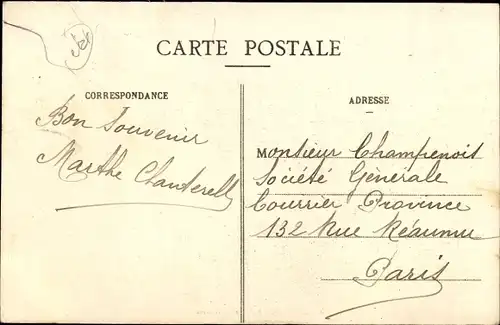 CARTE POSTALE
CORRESPONDANCE
Bon Souvenir
Marthe Chanterell
ADRESSE
Monsieur Champenois
Société Générale
Courrier Province
132 Rue Réaumur
Paris